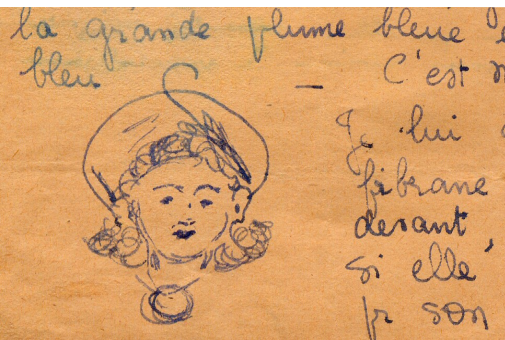 la grande plume bleue e
bleu — C'est
Je lui
fibrane
devant
si elle
pr son